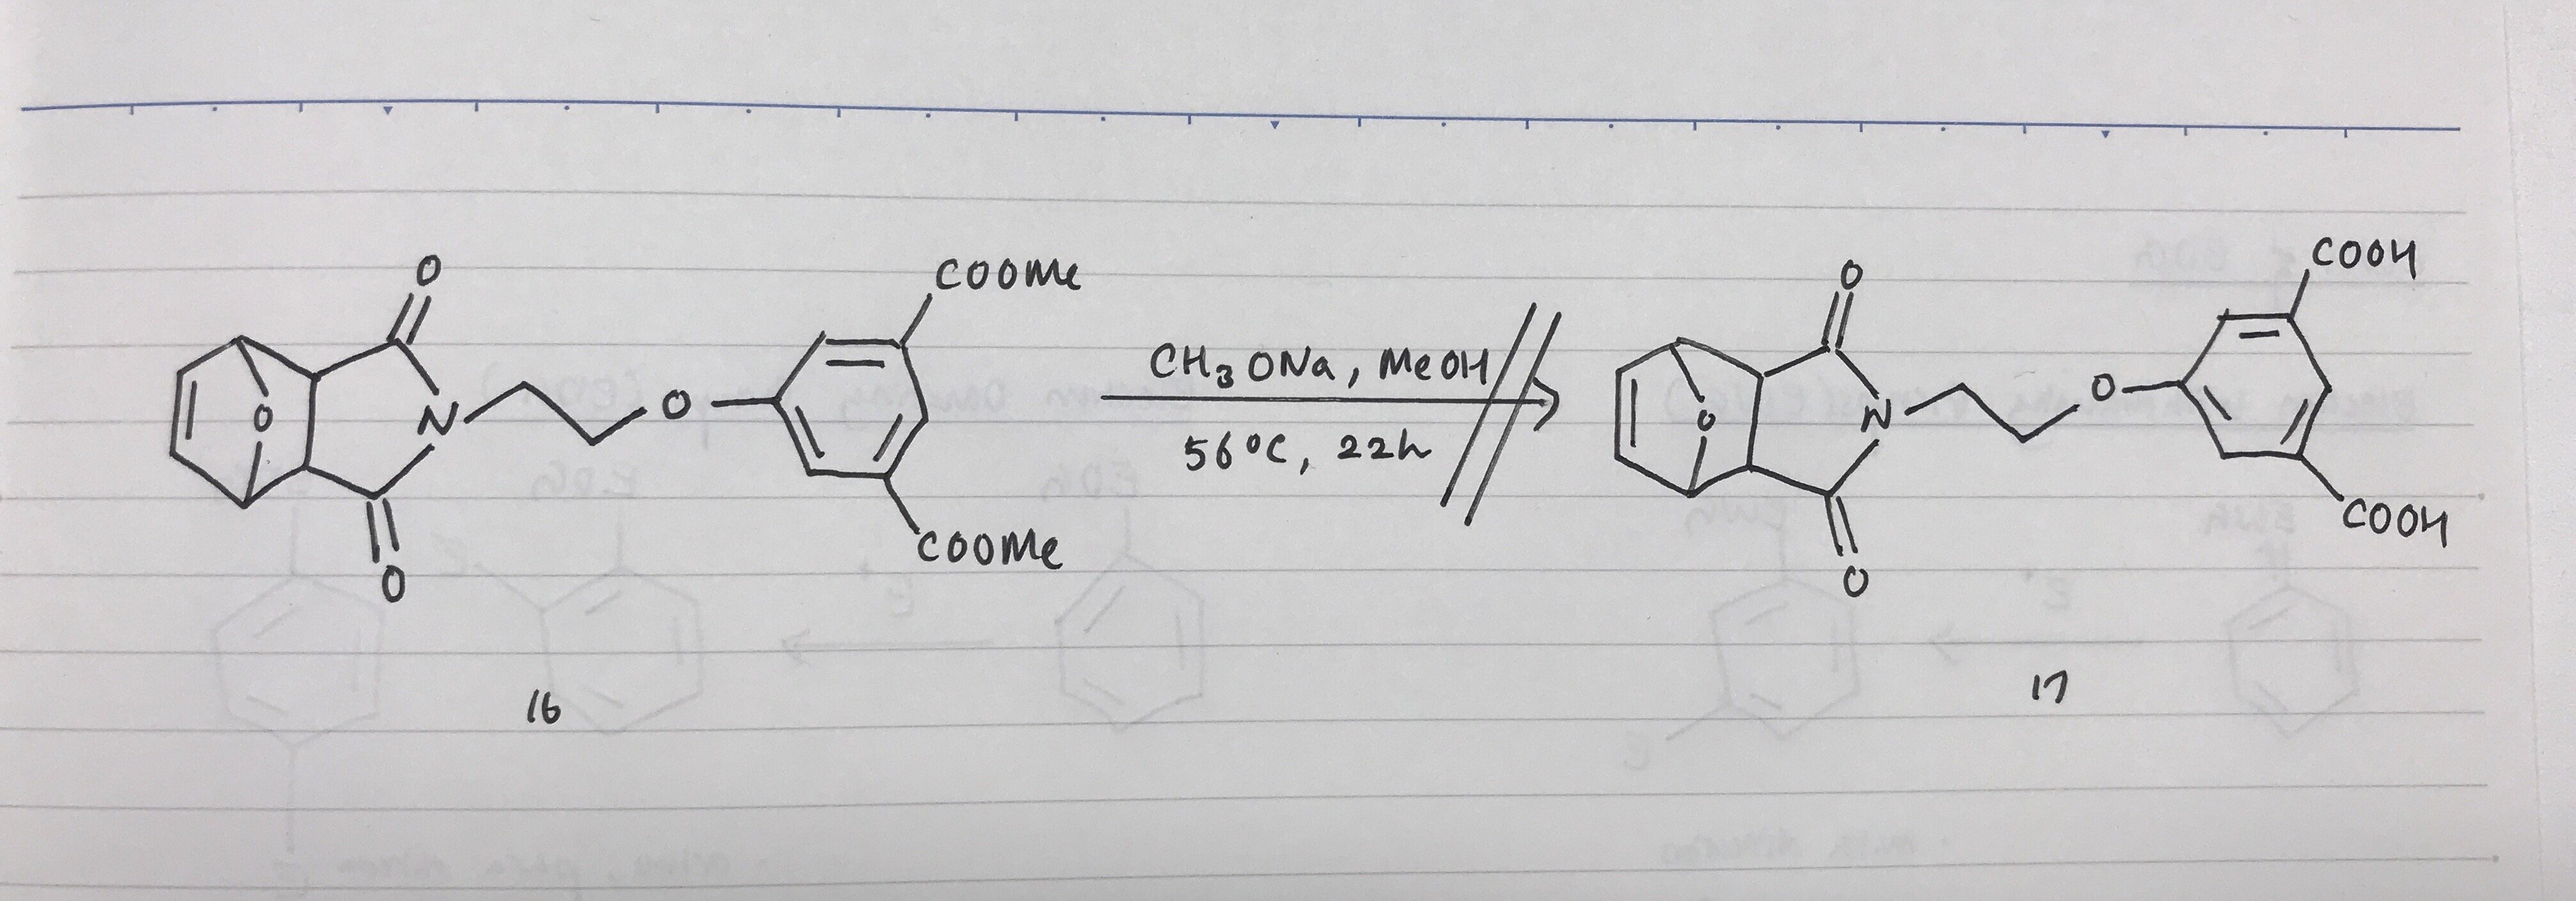 O
COOMe
CH₃ONa, MeOH
O
COOH
O
N
O
56°C, 22h
O
N
O
O
COOMe
O
COOH
16
17